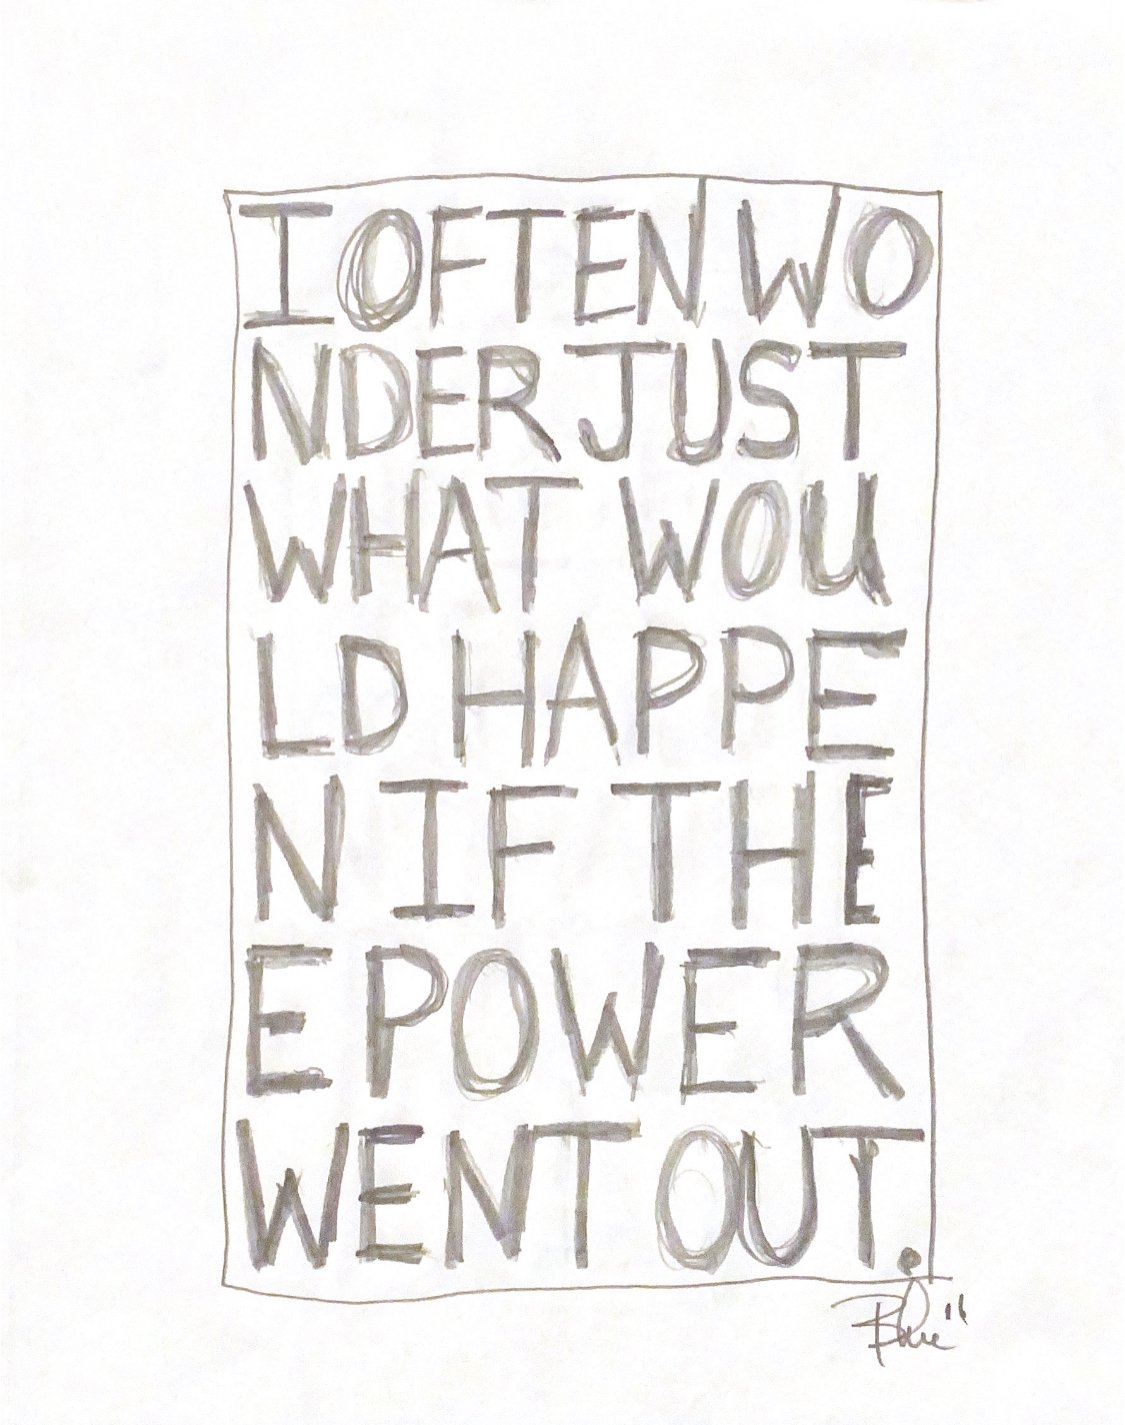 I OFTEN WO
NDER JUST
WHAT WOU
LD HAPPE
N IF THE
E POWER
WENT OUT.